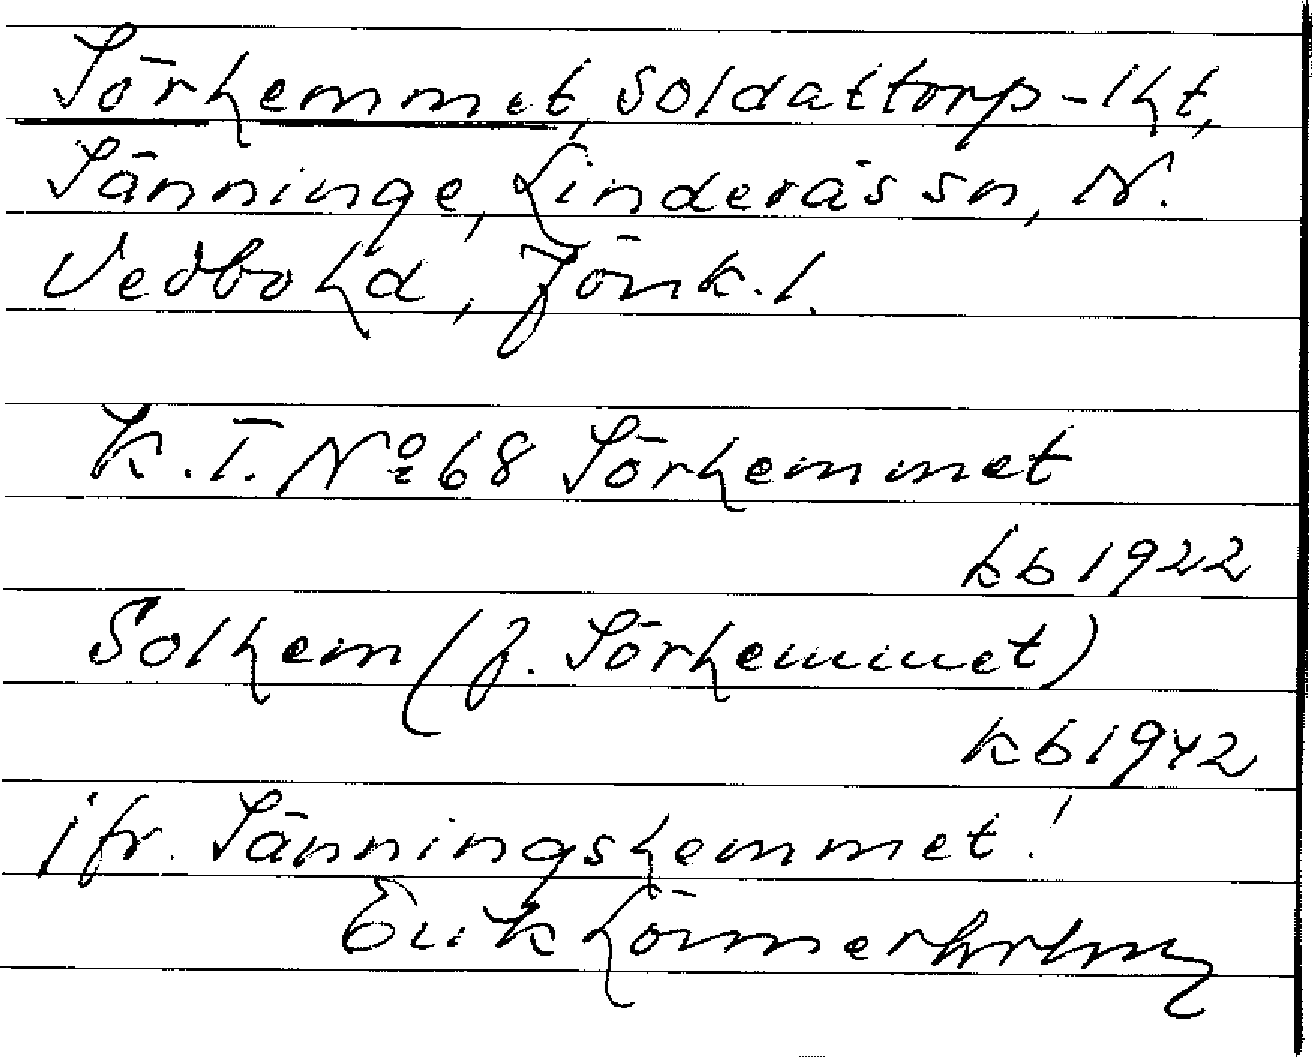 Sörhemmet, soldattorp - lht,
Sänninge, Linderås sn, N.
Vedbo hd, Jönk. l.
K. I. No 68 Sörhemmet
kb 1922
Solhem (f. Sörhemmet)
kb 1942
jfr. Sänningshemmet!
Erik Lönnerholm